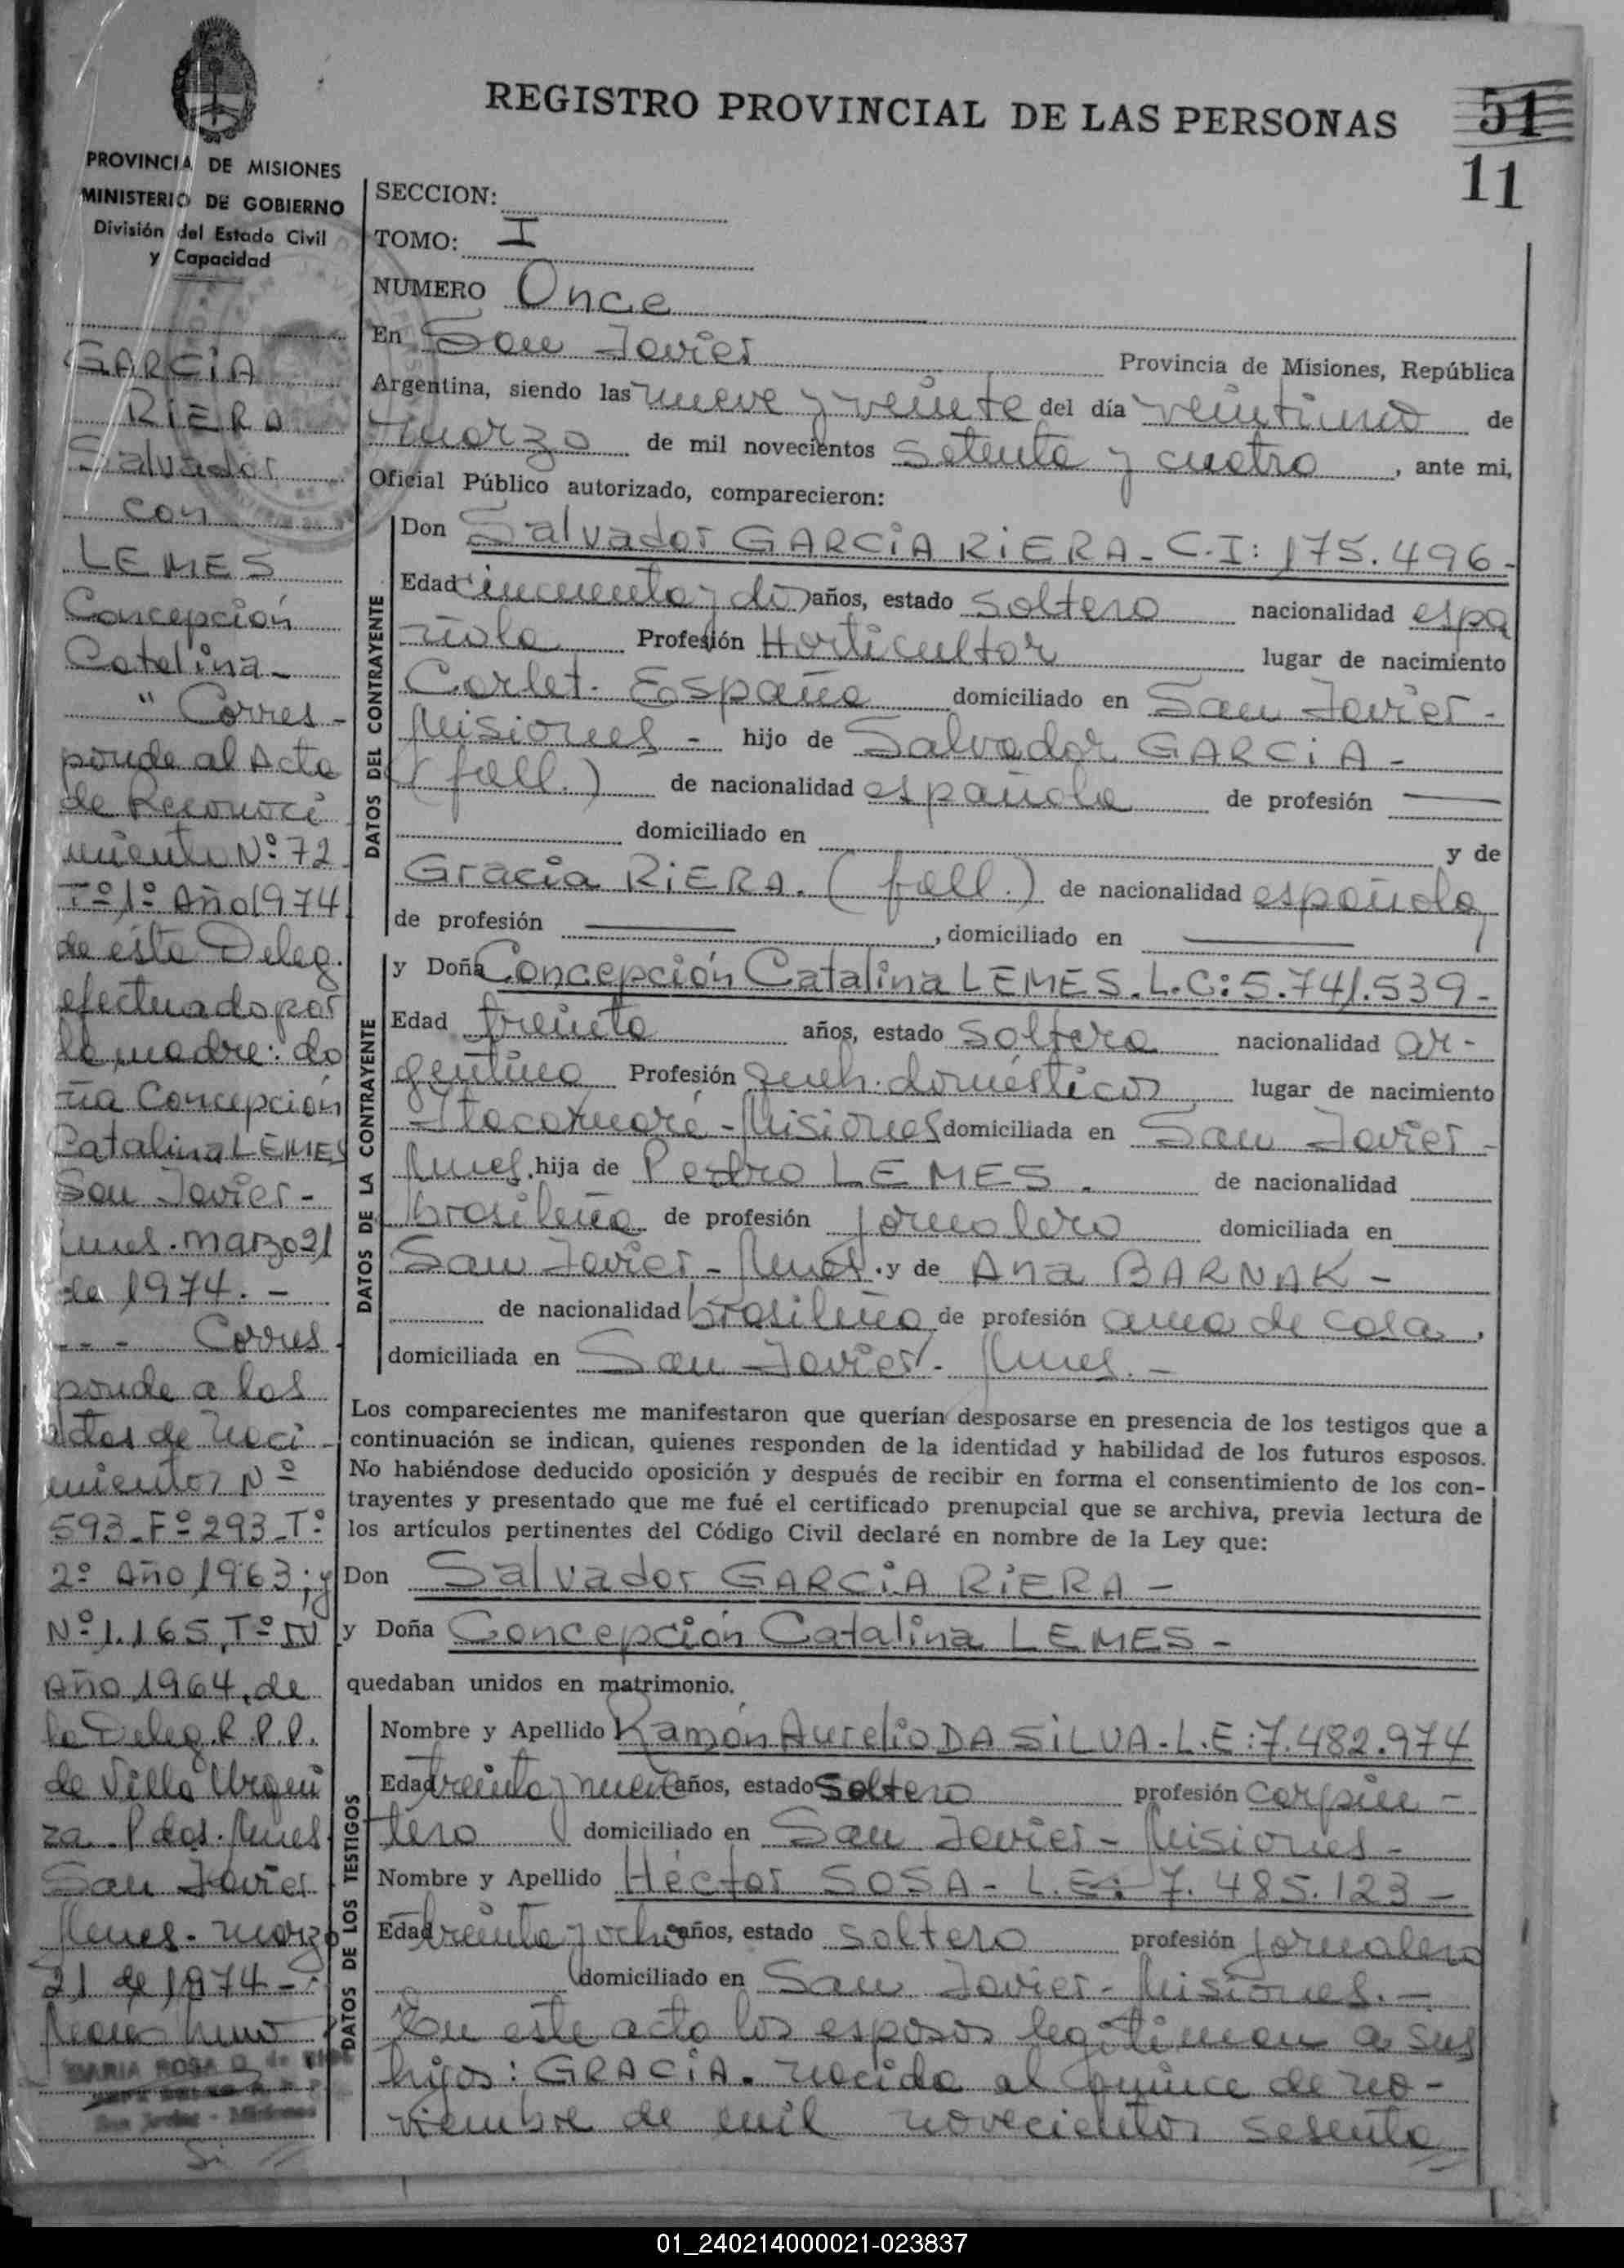 REGISTRO PROVINCIAL DE LAS PERSONAS
51
11
PROVINCIA DE MISIONES
MINISTERIO DE GOBIERNO
División del Estado Civil
y Capacidad
GARCIA
RIERA
Salvador
con
LEMES
Concepción
Catalina -
" Corres -
ponde al Acta
de Reconoci
miento Nº 72
Tº 1º Año 1974
de esta Deleg.
efectuado por
la madre: do
ña Concepción
Catalina LEMES
San Javier -
Mnes. marzo 21
de 1974. -
- - - Corres
ponde a las
actas de naci -
mientos Nº
593 - Fº 293 - Tº
2º Año 1963; y
Nº 1.165, Tº IV
Año 1964, de
la Deleg. R.P.P.
de Villa Urqui
za - Pdas. Mnes.
San Javier
Mnes - marzo
21 de 1974 -
MARIA ROSA
SECCION:
TOMO: I
NUMERO Once
En San Javier Provincia de Misiones, República
Argentina, siendo las nueve y veinte del día veintiuno de
marzo de mil novecientos setenta y cuatro, ante mi,
Oficial Público autorizado, comparecieron:
DATOS DEL CONTRAYENTE
Don Salvador GARCIA RIERA - C.I: 175.496 -
Edad cincuenta y dos años, estado soltero nacionalidad espa
ñola Profesión Horticultor lugar de nacimiento
Carlet - España domiciliado en San Javier -
Misiones - hijo de Salvador GARCIA -
(fall.) de nacionalidad española de profesión ——
domiciliado en y de
Gracia RIERA. (fall.) de nacionalidad española
de profesión ——, domiciliado en ——
DATOS DE LA CONTRAYENTE
y Doña Concepción Catalina LEMES. L.C: 5.741.539 -
Edad treinta años, estado soltera nacionalidad ar -
gentina Profesión queh. domésticos lugar de nacimiento
Itacaruaré - Misiones domiciliada en San Javier -
Mnes. hija de Pedro LEMES. de nacionalidad
brasileña de profesión jornalero domiciliada en
San Javier - Mnes. y de Ana BARNAK -
de nacionalidad brasileña de profesión ama de casa,
domiciliada en San Javier - Mnes. -
Los comparecientes me manifestaron que querían desposarse en presencia de los testigos que a
continuación se indican, quienes responden de la identidad y habilidad de los futuros esposos.
No habiéndose deducido oposición y después de recibir en forma el consentimiento de los con-
trayentes y presentado que me fué el certificado prenupcial que se archiva, previa lectura de
los artículos pertinentes del Código Civil declaré en nombre de la Ley que:
Don Salvador GARCIA RIERA -
y Doña Concepción Catalina LEMES -
quedaban unidos en matrimonio.
DATOS DE LOS TESTIGOS
Nombre y Apellido Ramón Aurelio DA SILVA - L.E: 7.482.974
Edad treinta y nueve años, estado soltero profesión carpin -
tero domiciliado en San Javier - Misiones -
Nombre y Apellido Héctor SOSA - L.E: 7.485.123 -
Edad treinta y ocho años, estado soltero profesión jornalero
domiciliado en San Javier - Misiones. -
En este acto los esposos legitiman a sus
hijos: GRACIA. nacida el quince de no -
viembre de mil novecientos sesenta
01_240214000021-023837